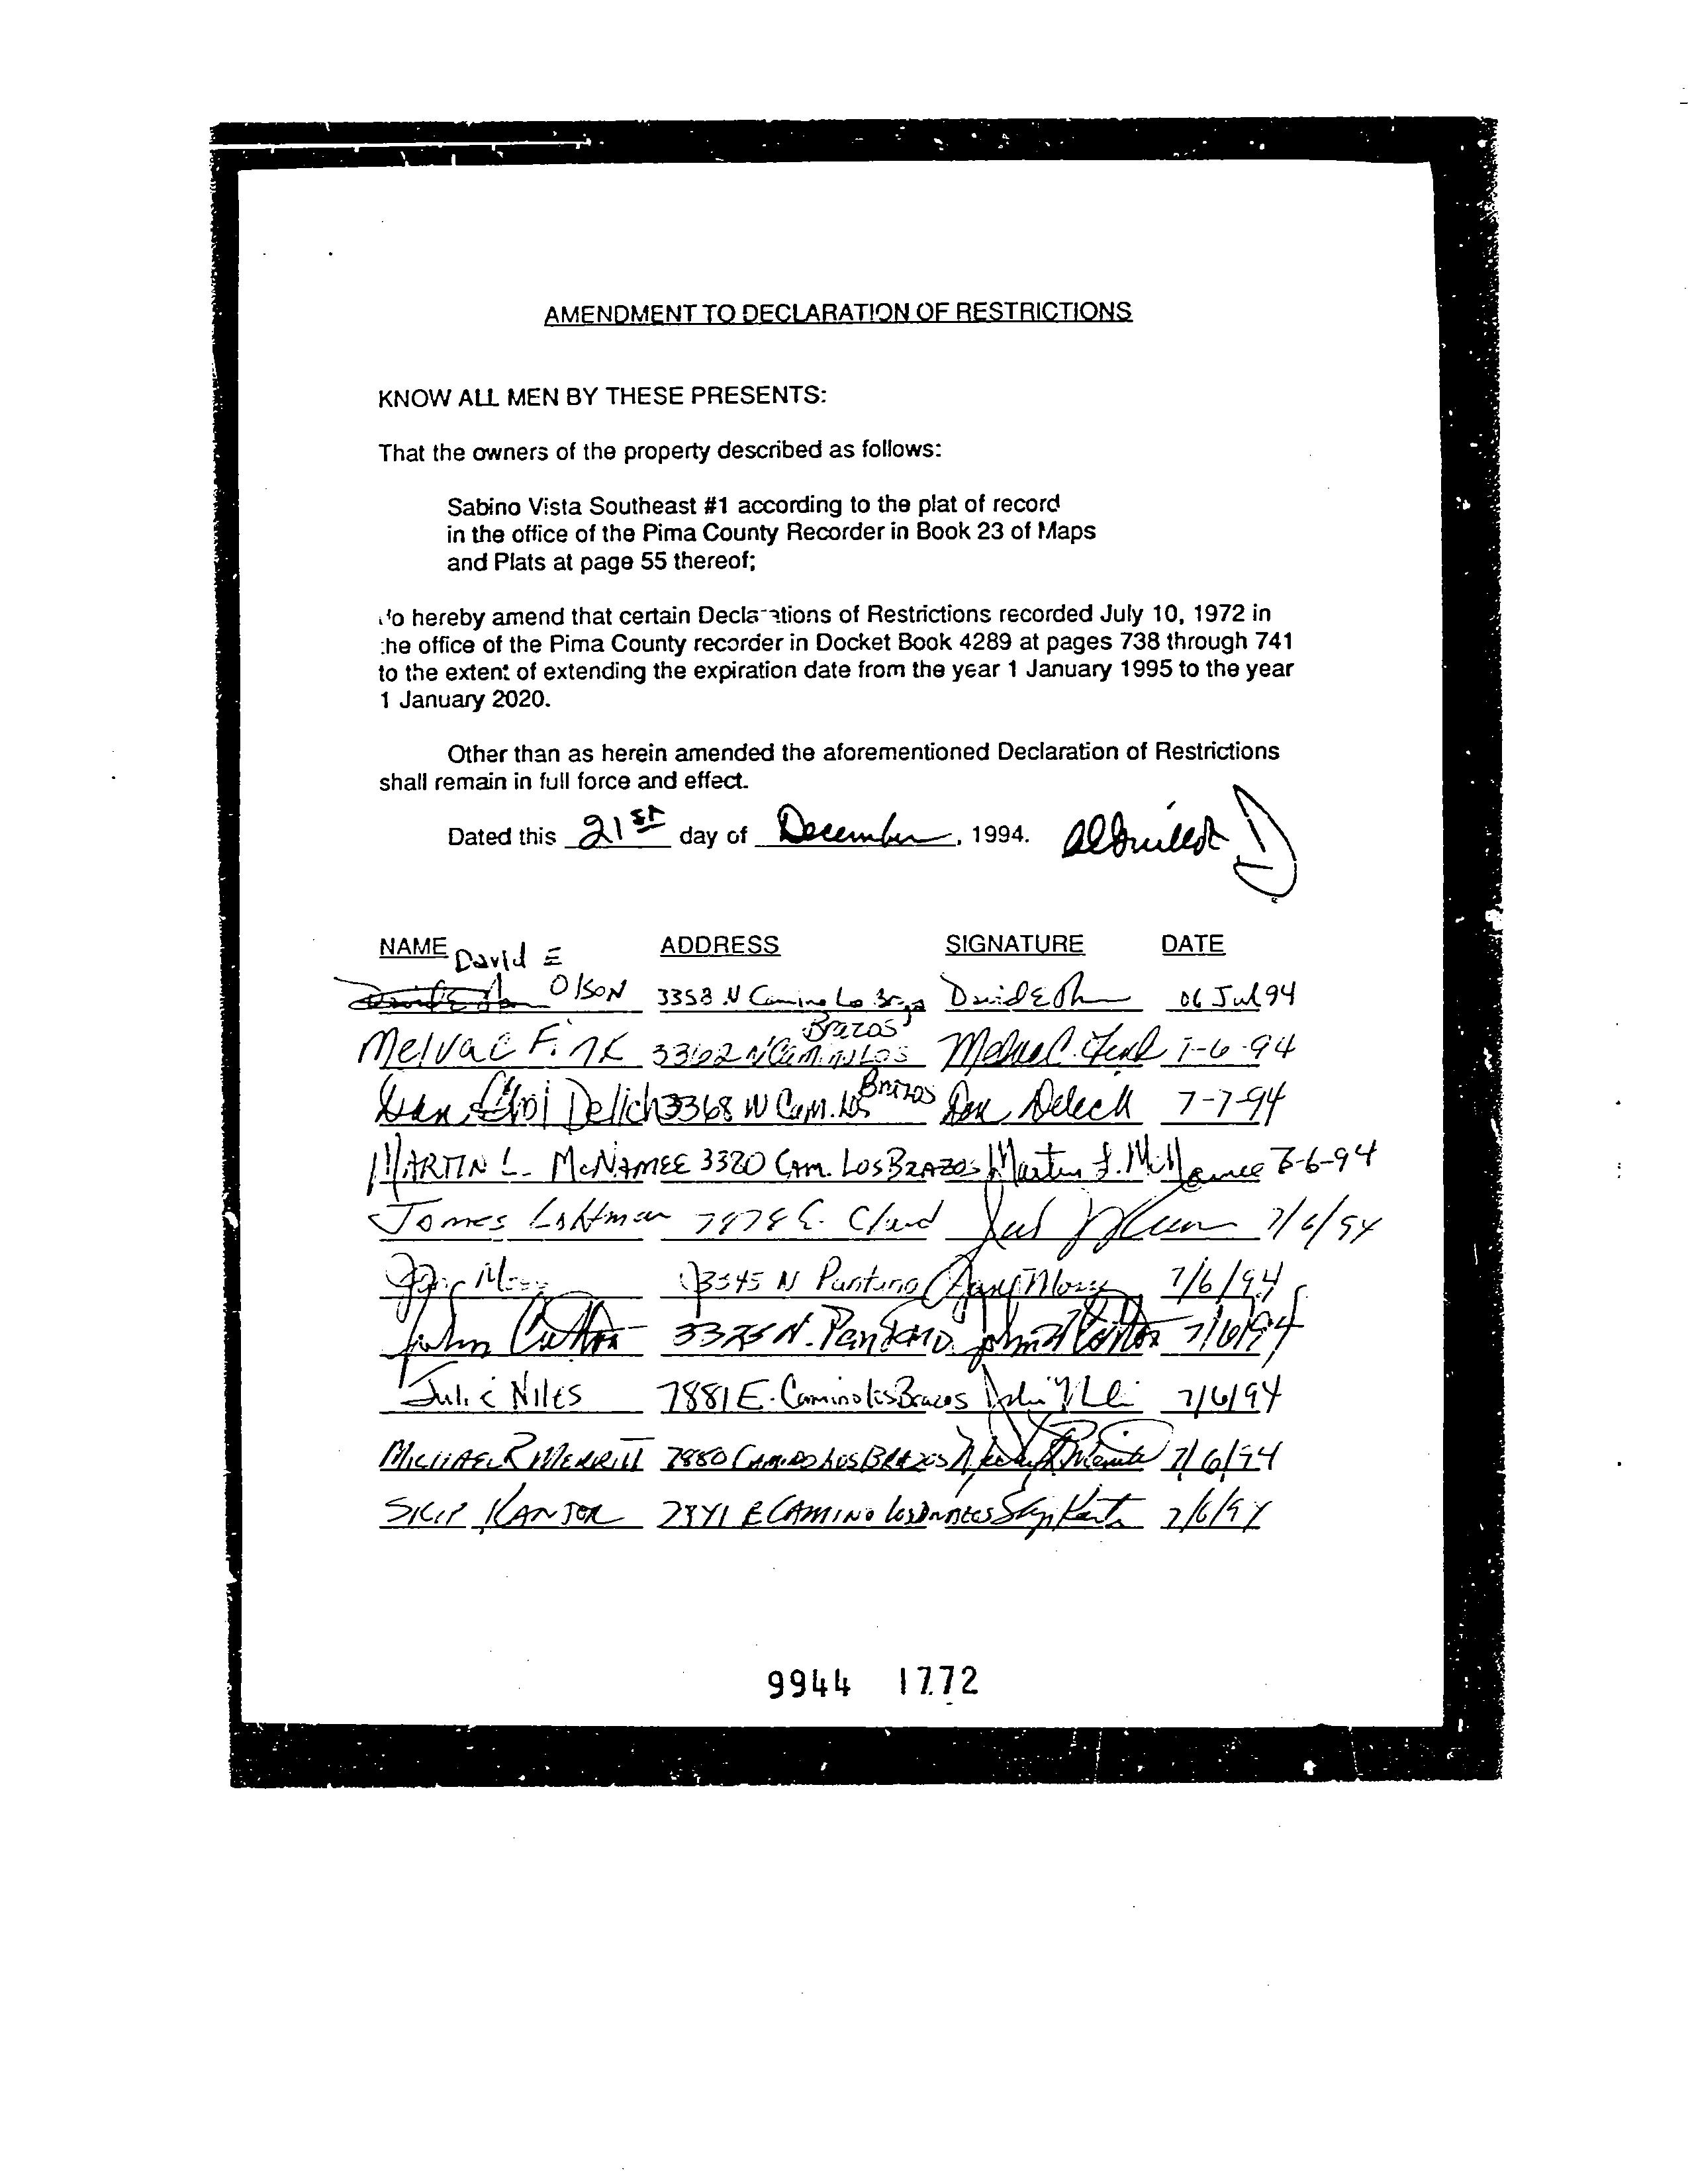 AMENDMENT TO DECLARATION OF RESTRICTIONS
KNOW ALL MEN BY THESE PRESENTS:
That the owners of the property described as follows:
Sabino Vista Southeast #1 according to the plat of record
in the office of the Pima County Recorder in Book 23 of Maps
and Plats at page 55 thereof;
do hereby amend that certain Declarations of Restrictions recorded July 10, 1972 in
the office of the Pima County recorder in Docket Book 4289 at pages 738 through 741
to the extent of extending the expiration date from the year 1 January 1995 to the year
1 January 2020.
Other than as herein amended the aforementioned Declaration of Restrictions
shall remain in full force and effect.
Dated this 21st day of December, 1994.
NAME ADDRESS SIGNATURE DATE
David E
Olson 3358 N Camino Lo 06 Jul 94
Brazos
Melva C Fink 3362 N Cam. Los 7-6-94
Brazos
Dan Delich 3368 N Cam. Los Dan Delich 7-7-94
MARTIN L. McNAMEE 3320 CAM. LOS BRAZOS Martin L. McNamee 7-6-94
James 7878 E. 7/6/94
3345 N Pantano 7/6/94
John 3325 N. Pantano John 7/6/94
Julie Niles 7881 E. Camino los Brazos 7/6/94
MICHAEL R MERRITT 7880 CAMINO LOS BRAZOS 7/6/94
SKIP KANTOR 7841 E CAMINO Skip Kantor 7/6/94
9944 1772